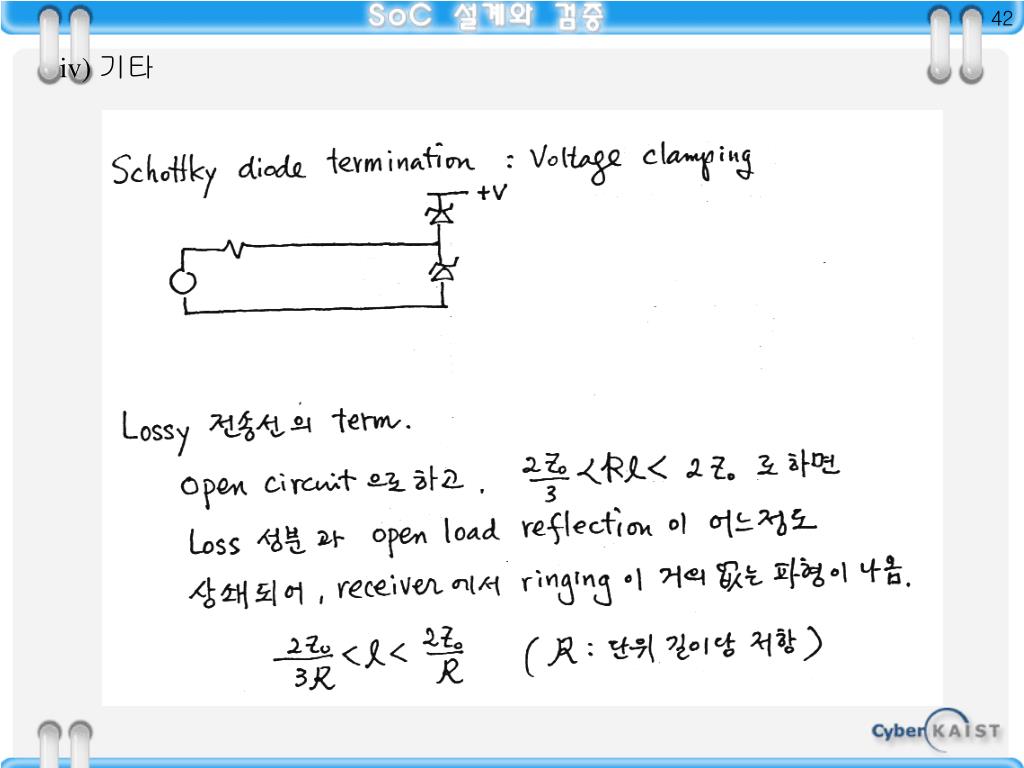 SoC 설계와 검증
42
iv) 기타
Schottky diode termination : Voltage clamping
+V
Lossy 전송선의 term.
open circuit 으로 하고, 2Z₀/3 < Rl < 2Z₀ 로 하면
Loss 성분과 open load reflection 이 어느정도
상쇄되어, receiver 에서 ringing 이 거의 없는 파형이 나옴.
2Z₀/3R < l < 2Z₀/R ( R : 단위 길이당 저항 )
Cyber KAIST